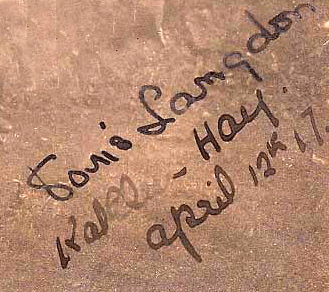 Doris Langdon
- Hay.
april 12th 17